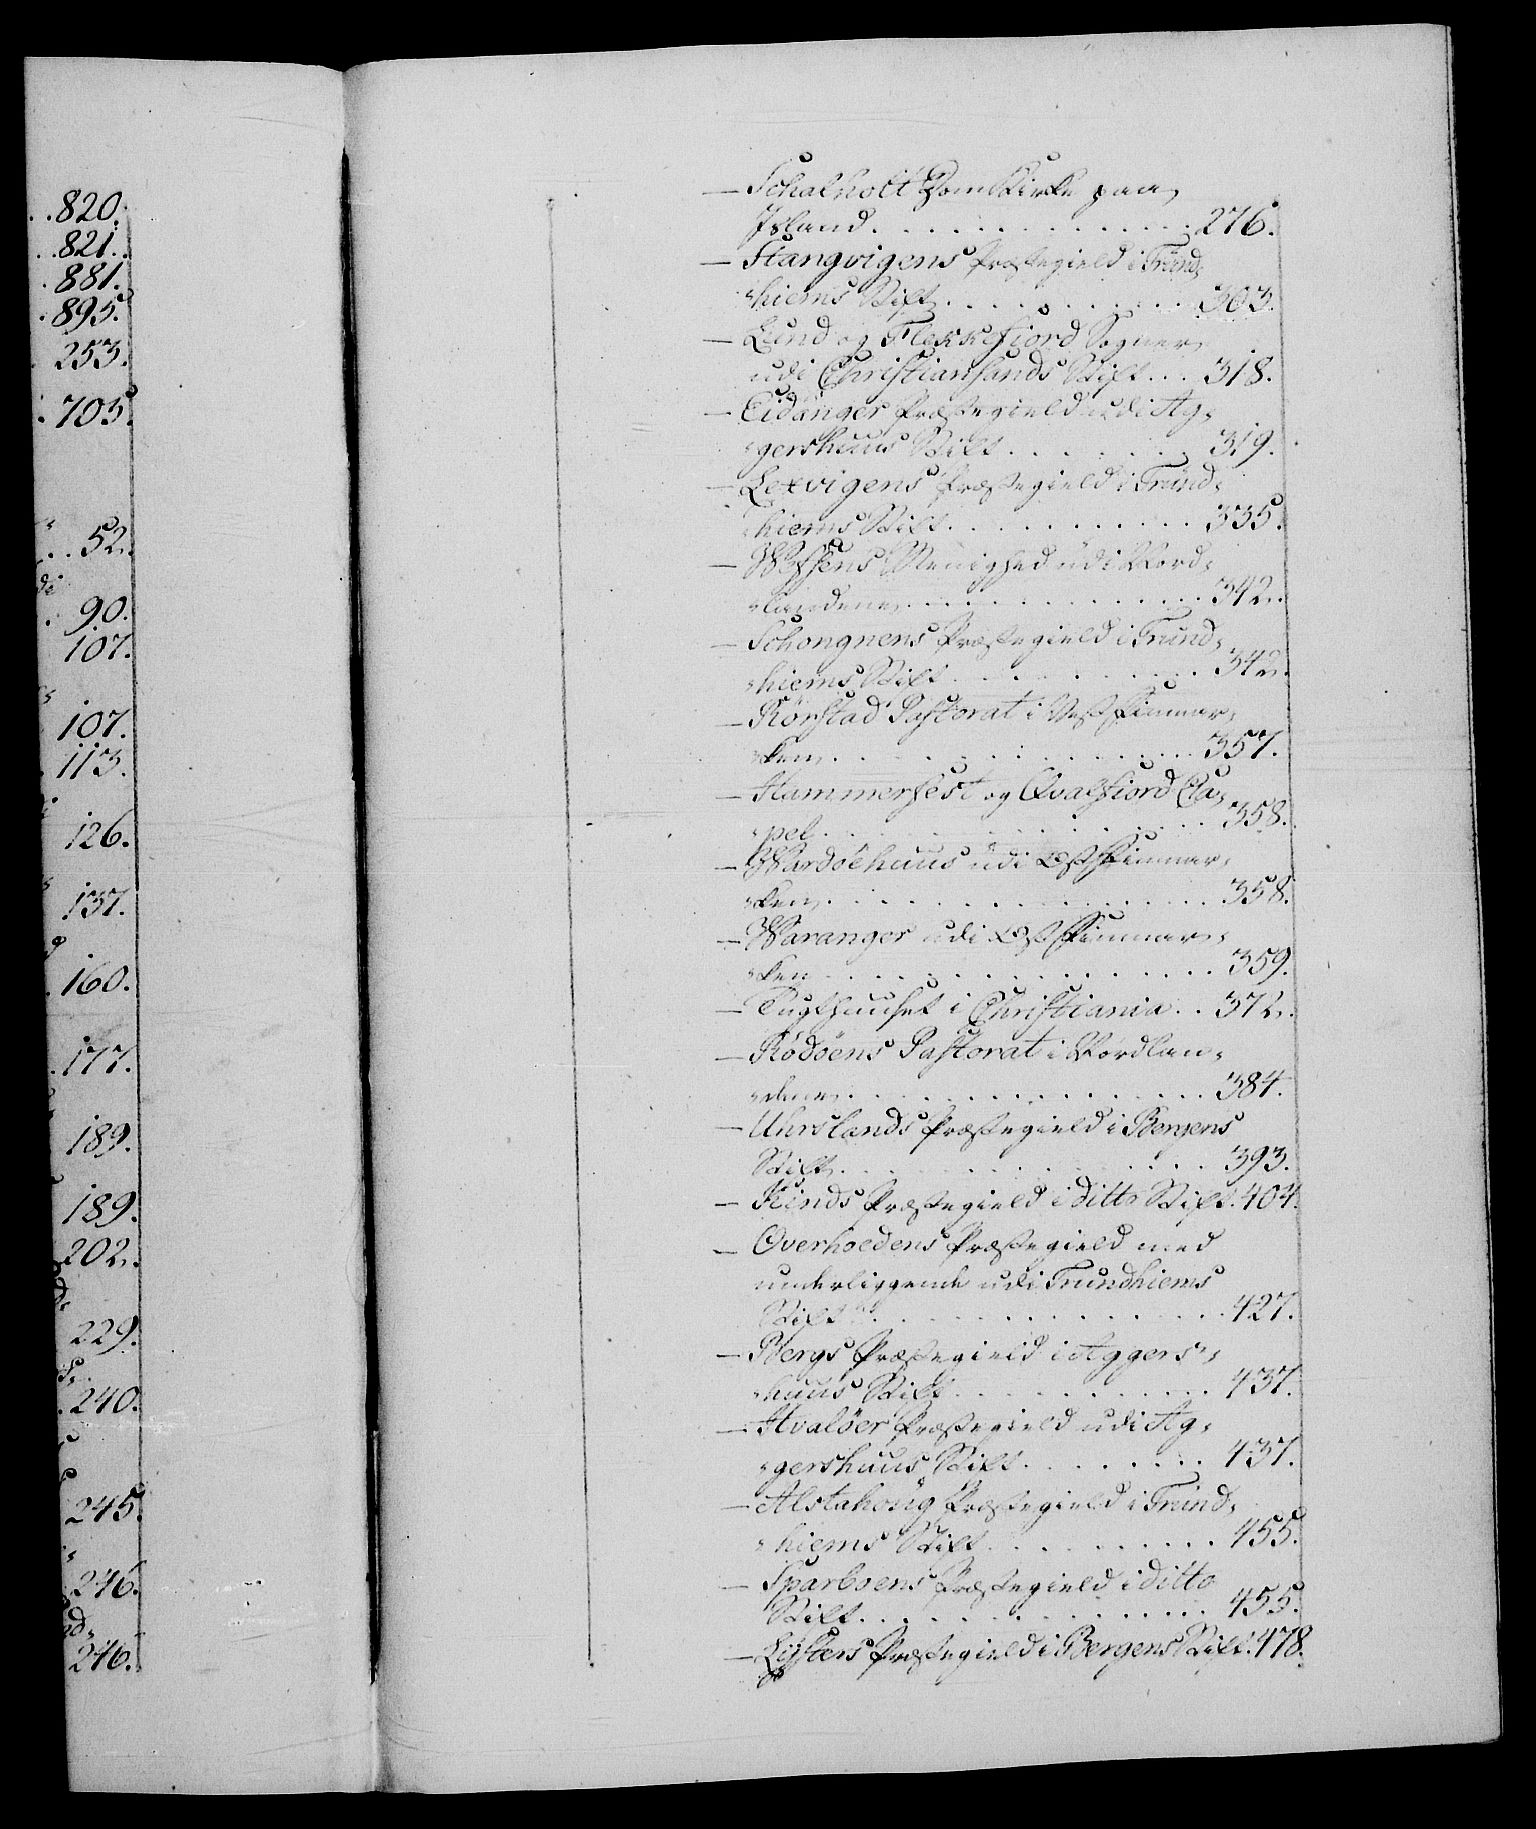 . . 820.
. . 821.
. 881.
. 895.
. 253.
. 705.
. . 52.
di
. 90.
107.
107.
. 113.
126.
137.
. 160.
. 177.
189.
189.
202.
229.
. 240.
245.
246.
nd,
246.
— Schalholt Dom Kirke paa
Island . . . . . . . . . . . . 276.
— Stangvigens Præstegield i Trund,
„hiems Stift . . . . . . . . . . 303.
— Lund og Flekkefiord Sogner
udi Christiansands Stift . . . 318.
— Eidanger Præstegield udi Ag,
„gershuus Stift . . . . . . . 319.
— Lexvigens Præstegield i Trund,
„hiems Stift . . . . . . . . . . 335.
— Wefsens Menighed udi Nord,
„landene . . . . . . . . . . . . 342.
— Schongnens Præstegield i Trund,
„hiems Stift . . . . . . . . . . 342.
— Rørstad Pastorat i Vest Finmar,
„ken . . . . . . . . . . . . . . 357.
— Hammerfest og Qvalfiord Ca,
„pel . . . . . . . . . . . . . . 358.
— Wardöehuus udi Øst Finmar,
„ken . . . . . . . . . . . . . . 358.
— Waranger udi Øst Finmar,
„ken . . . . . . . . . . . . . . 359.
— Tugthuuset i Christiania . . 372.
— Rødöens Pastorat i Nordlan,
„dene . . . . . . . . . . . . . 384.
— Uhrslands Præstegield i Bergens
Stift . . . . . . . . . . . . . . 393.
— Kinds Præstegield i ditto Stift . 404.
— Overhoedens Præstegield med
underliggende udi Trundhiems
Stift . . . . . . . . . . . . . . 427.
— Bergs Præstegield i Aggers„
„huus Stift . . . . . . . . . . 437.
— Hvaløer Præstegield udi Ag,
„gershuus Stift . . . . . . . . 437.
— Alstahoug Præstegield i Trund,
„hiems Stift . . . . . . . . . . 455.
— Sparboens Præstegield i ditto
Stift . . . . . . . . . . . . . . 455.
— Lysters Præstegield i Bergens Stift . 478.